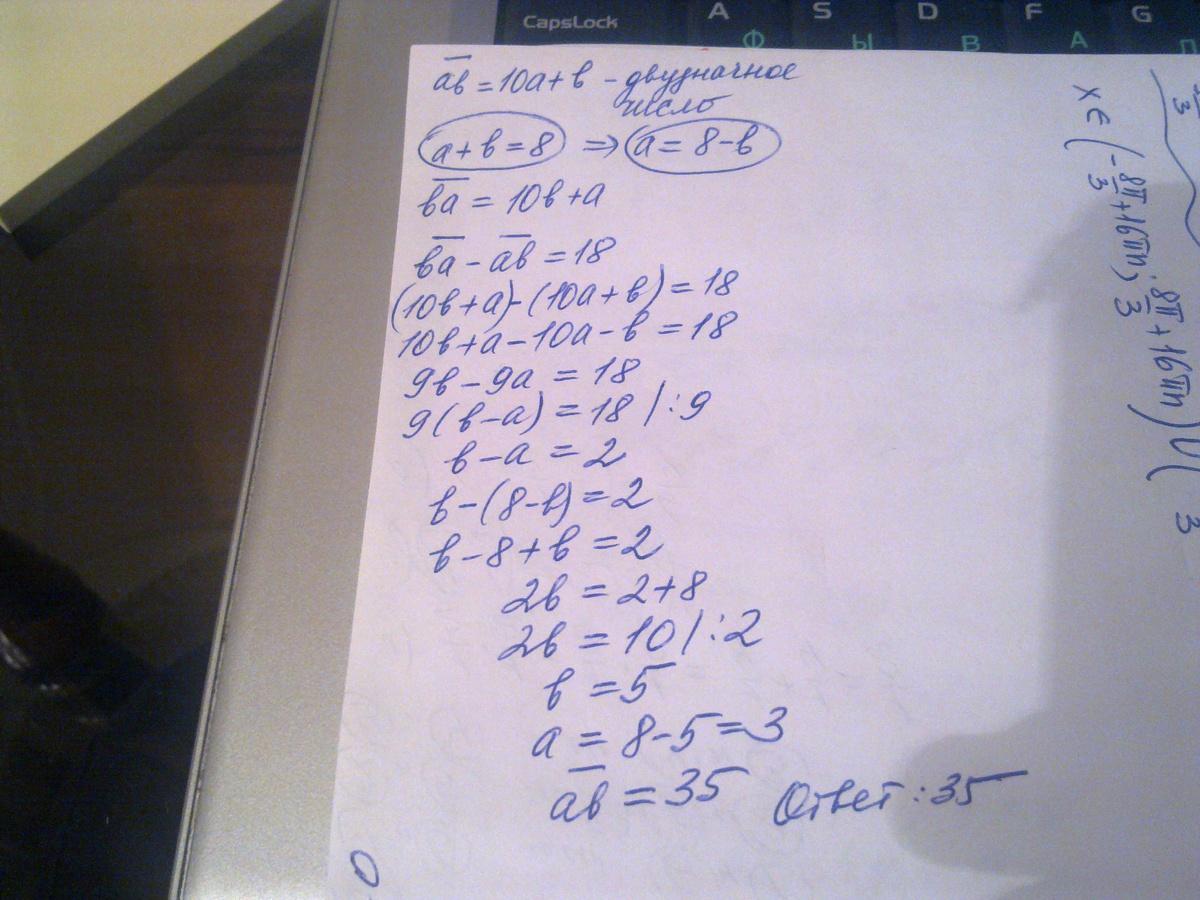 CapsLock A S D F G
Ф Ы В А П
ab = 10a + b - двузначное
число
a + b = 8 => a = 8 - b
ba = 10b + a
ba - ab = 18
(10b + a) - (10a + b) = 18
10b + a - 10a - b = 18
9b - 9a = 18
9(b - a) = 18 | : 9
b - a = 2
b - (8 - b) = 2
b - 8 + b = 2
2b = 2 + 8
2b = 10 | : 2
b = 5
a = 8 - 5 = 3
ab = 35 Ответ: 35
x ∈ (-8π/3 + 16πn; 8π/3 + 16πn) ∪ (